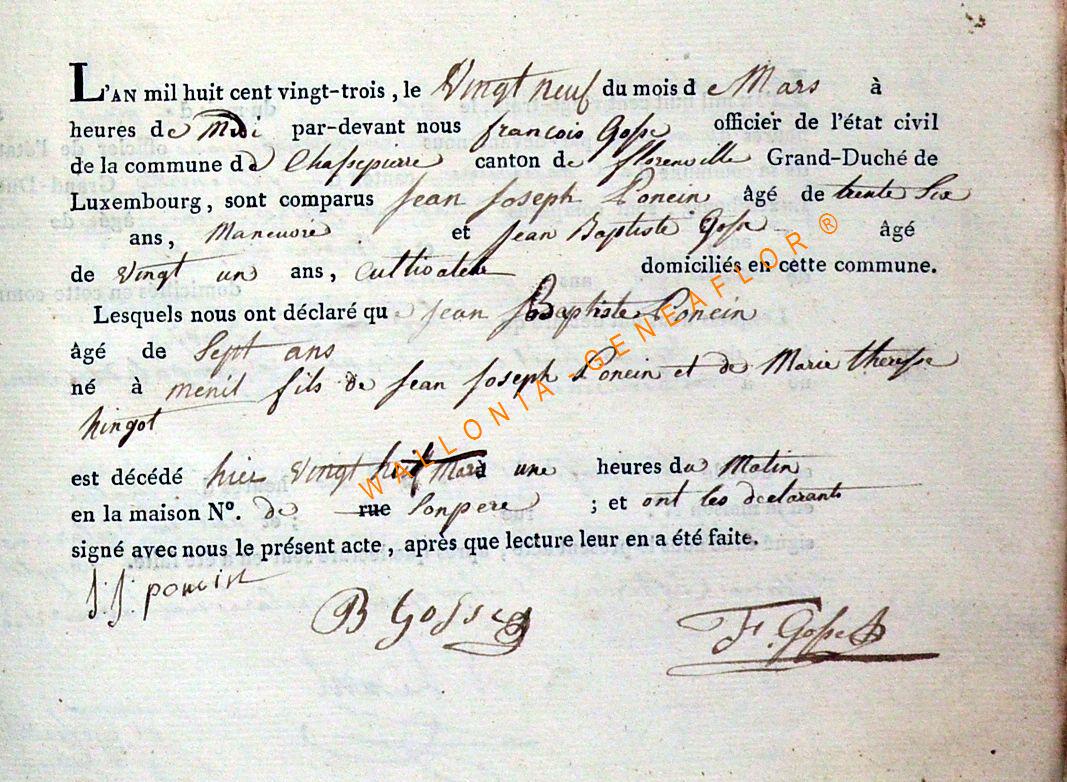 L'AN mil huit cent vingt-trois, le Vingt neuf du mois de Mars à
heures de Midi par-devant nous françois Gosse officier de l'état civil
de la commune de Chassepierre canton de florenville Grand-Duché de
Luxembourg, sont comparus Jean Joseph Poncin âgé de trente Six
ans, Maneuvre et Jean Baptiste Gosse âgé
de vingt un ans, Cultivateur domiciliés en cette commune.
Lesquels nous ont déclaré que Jean Baptiste Poncin
âgé de Sept ans
né à menil fils de Jean Joseph Poncin et de Marie therese
hingot
est décédé hier vingt huit Mars à une heures du Matin
en la maison N°. de rue Son pere ; et ont les declarants
signé avec nous le présent acte, après que lecture leur en a été faite.
J.J. poncin
B Gosse
F. Gosse
WALLONIA-GENEAFLOR ®